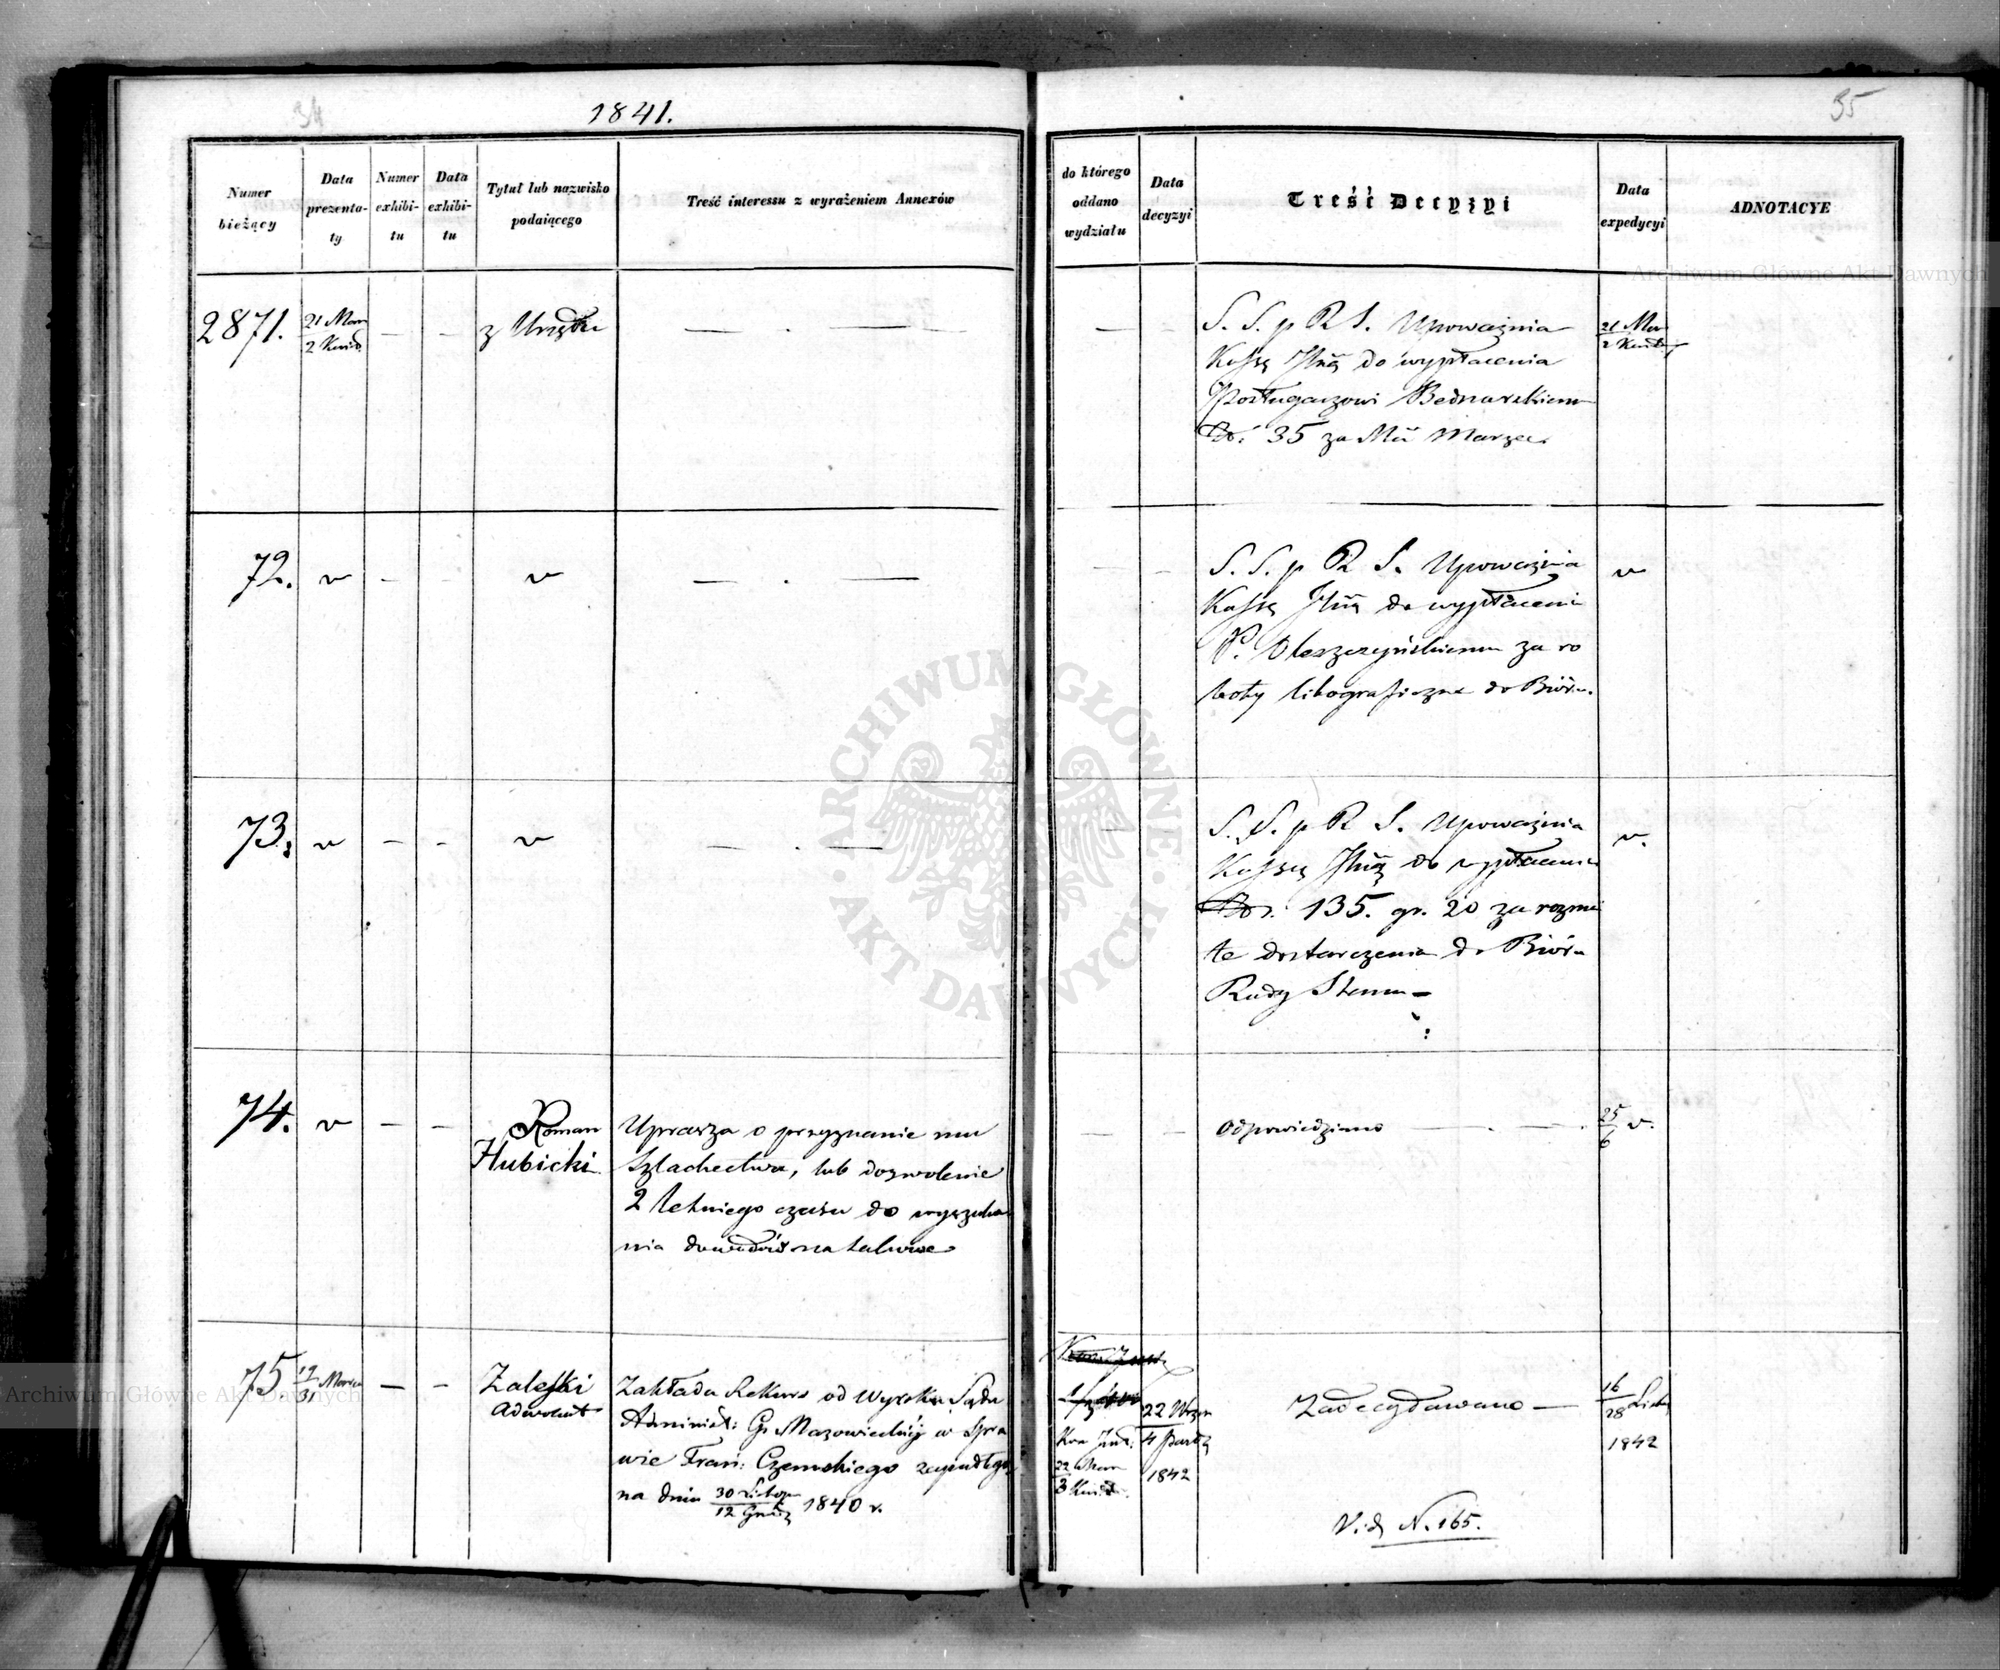 34
1841.
35
Numer bieżący
Data prezenta-ty
Numer exhibi-tu
Data exhibi-tu
Tytuł lub nazwisko podaiącego
Treść interessu z wyrażeniem Annexów
do którego oddano wydziału
Data decyzyi
Treść Decyzyi
Data expedycyi
ADNOTACYE
2871.
21 Mar
2 Kwiet.
z Urzędu
S. S. p R S. Upoważnia
Kassę Płną do wypłacenia
Posługaczowi Bednarskiemu
35 za Mc Marzec
21 Mar
2 Kwiet
72.
S. S. p R S. Upoważnia
Kassę do wypłacenia
P. Oleszczyńskiemu za ro
boty litograficzne do Bióra.
73.
S. S. p R S. Upoważnia
Kassę do wypłacenia
135. gr. 20 za rozmai
te dostarczenia do Bióra
Rady Stanu
74.
Roman
Hubicki
Uprasza o przyznanie mu
Szlachectwa, lub dozwolenie
2 letniego czasu do wyszuka
nia dowodów na takowe
Odpowiedziano
25
6
75.
19
31 Marca
Zaleski
Adwokat
Zakłada Rekurs od Wyroku Sądu
Administ: G. Mazowieckiej w Spra
wie Fran: Czemskiego zapadłego
na dniu 30 Listop
12 Grud 1840 r.
22 Mar
3 Kwiet
22 Wrześ
4 Paźdz
1842
Zadecydowano
16
28 List
1842
Vid N. 165.
ARCHIWUM GŁÓWNE AKT DAWNYCH
Archiwum Główne Akt Dawnych
Archiwum Główne Akt Dawnych